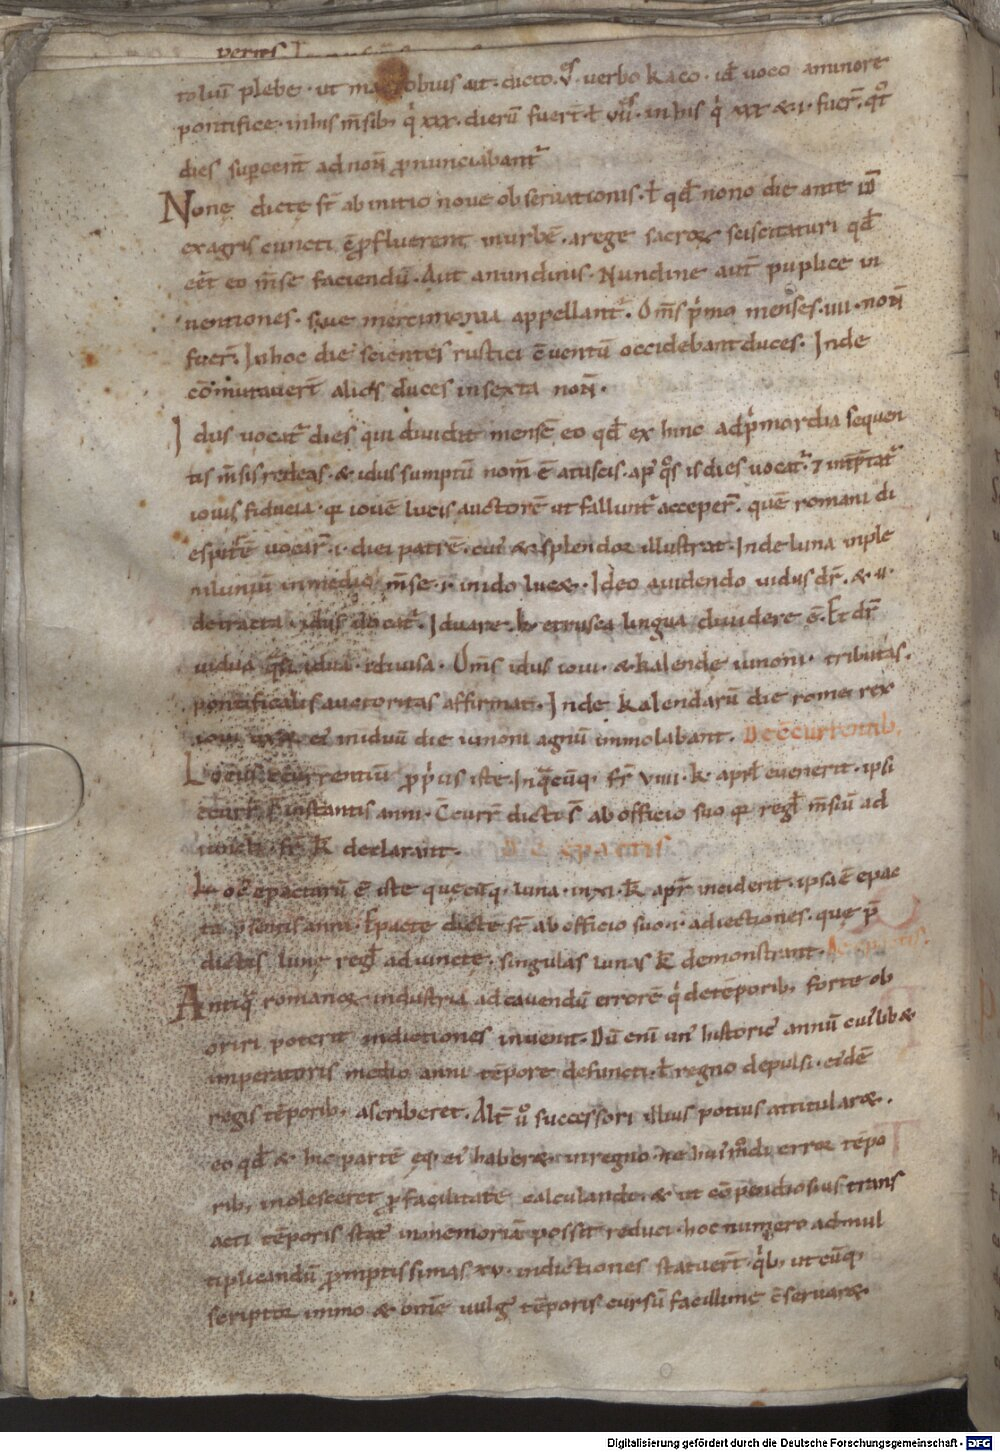 toliū plebe · ut macrobius ait · dicto · v̊ · verbo kaco · id̄ voco a minore
pontifice · inhis m̄sib; q̇ xxx · dierū fuer̄t · ł vii̊ · inhis q̇ xxx & · i · fuer̄ · qđ
dies supeent̄ ad noñ p̱nunciabant᷑
Nonę dictę st̄ ab initio noue obseruationis · ł qđ nono die ante id̄
ex agris cuncti c̄p̱fluerent in urbē · a rege sacroꝝ sciscitaturi qđ
eēt eo m̄se faciendū · Aut a nundinis · Nundine aut̄ puplice in
uentiones · siue mercimonia appellant᷑ · Om̄s p̓mo menses · iiii · noñ
fuer̄ · In hoc die scientes rustici c̄uentū occidebant duces · Inde
cōmutauer̄t alios duces in sexta noñ ·
Idus uocat᷑ dies qui diuidit mensē eo qđ ex hinc ad p̓mordia sequen
tis m̄sis redeas · & idus sumptū nom̄ ē a tuscis · ap̄ q̊s is dies uocat᷑ · ⁊ int̄p̄tat᷑
iouis fiducia · q̄ iouē lucis auctorē ut fallunt᷑ acceper̄ · quē romani di
espit̄rē uocar̄ · i · diei patrē · cui᷒ & splendor illustrat · Inde luna in ple
niluniū in medio m̄se · i · in ido luc& · Ideo a uidendo uidus dr̄ · & · u ·
detracta · idus uocat᷑ · Iduare · h̵ etrusca lingua diuidere ē · Et dr̄
uidua q̄si idua · i diuisa · Om̄s idus ioui · & kalende iunoni · tributas ·
pontificalis auctoritas affirmat · Inde kalendarū die rome rex
ei in iduū die iunoni agnū immolabant · De c̄currentib;
Locus c̄currentiū p̱p̓us iste · In q̄cūq; fr̄ viiii · k̄ · apł euenerit · ipsi
c̄curr̄ st̄ instantis anni · C̄curr̄ dicti st̄ ab officio suo q̄ regł m̄siū ad
iuncti · fr̄ k̄ declarant ·
De epactis
Loc᷒ epactarū ē iste quęcūq; luna · in xi · k̄ · apr̄ inciderit · ipsa ē epac
ta p̄sentis anni · Epacte dictę st̄ ab officio suo · i · adiectiones · quę p̄
dictis lunę regł adiunctę · singulas lunas k̄ demonstrant ·
Antiq̄ romanoꝝ industria ad cauendū errorē q̇ de tēporib; forte ob
oriri poterit indictiones inuenit · Dū eni un᷒ historic᷒ annū cui᷒ lib&
imperatoris medio anni tēpore defuncti · ł regno depulsi · eidē
regis tēporib; ascriberet · Alt̄ ů successori illius potius attitular& ·
eo qđ & hic partē eq̨ ei᷒ haber& · in regno · ne hui᷒modi erroꝝ tēpo
rib; inolesceret p̱ facilitatē calculandi · & ut cōpendiosius trans
acti tēporis stat᷒ in memoriā possit reduci · hoc numero ad mul
tiplicandū p̱mptissimas xv · indictiones statuer̄t · q̇b; ut cūq;
scriptoꝝ immo & omē uulg᷒ tēporis cursū facillime c̄seruar&
Digitalisierung gefördert durch die Deutsche Forschungsgemeinschaft - DFG